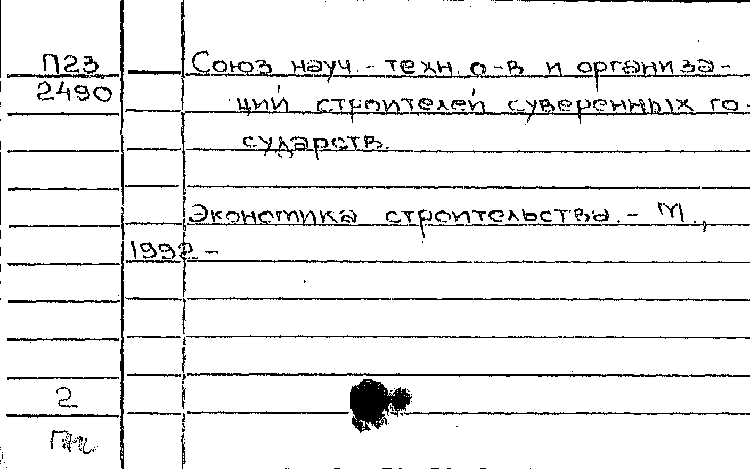 П23
2490
Союз науч.-техн. о-в и организа-
ций строителей суверенных го-
сударств.
Экономика строительства. - М.,
1992 -
2